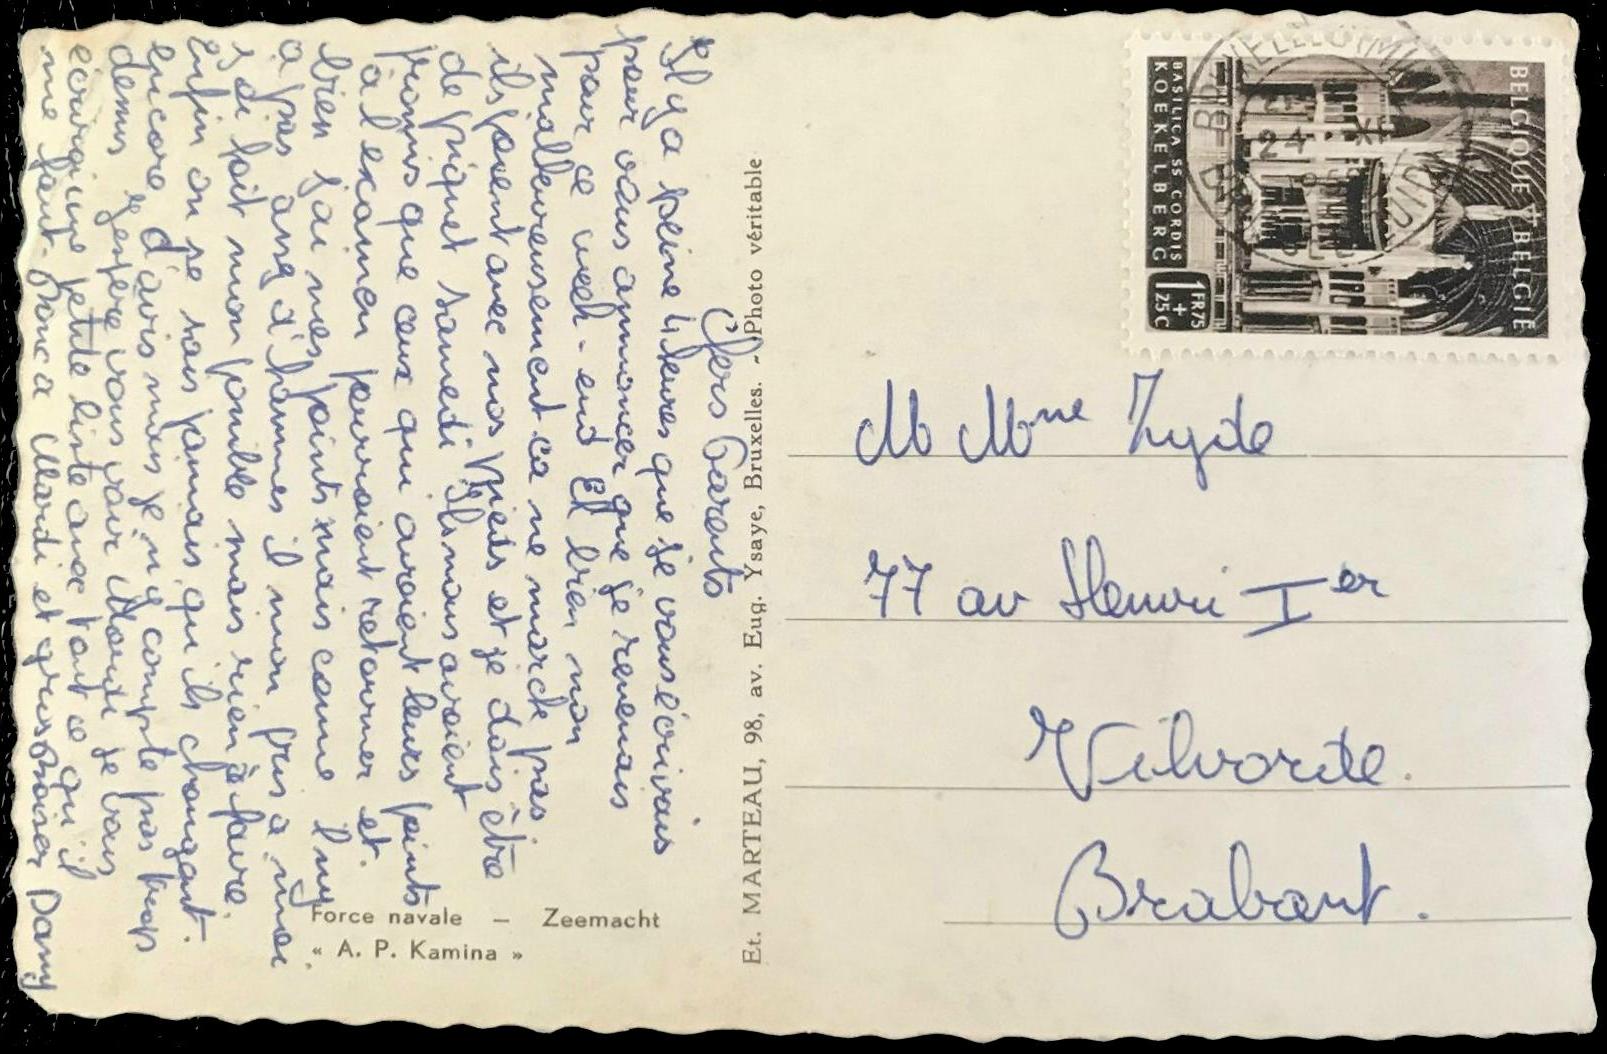 Chers Parents
Il y a peine 4 heures que je vous écrivais
pour vous annoncer que je revenais
pour ce week-end Et bien non
malheureusement ca ne marche pas
ils jouent avec nos pieds et je dois être
de piquet samedi Ils nous avaient
promis que ceux qui avaient leurs points
a l examen pourraient retourner et
bien j ai mes points mais comme l ny
a pas assez d'hommes il mon pris a moi
j ai fait mon possible mais rien à faire.
Enfin on ne sais jamais qu ils changent
encore d'avis mais je n y compte pas trop
j espère vous voir Mardi je vous
petite liste avec tout ce qu il
me faut. Donc a Mardi et gros baiser Dany
Force navale — Zeemacht
« A. P. Kamina »
Et. MARTEAU, 98, av. Eug. Ysaye, Bruxelles. - Photo véritable
BELGIQUE BELGIË
BASILICA SS CORDIS
KOEKELBERG
1FR75
+
25C
24
M Mme Zyde
77 av Henri Ier
Vilvorde.
Brabant.